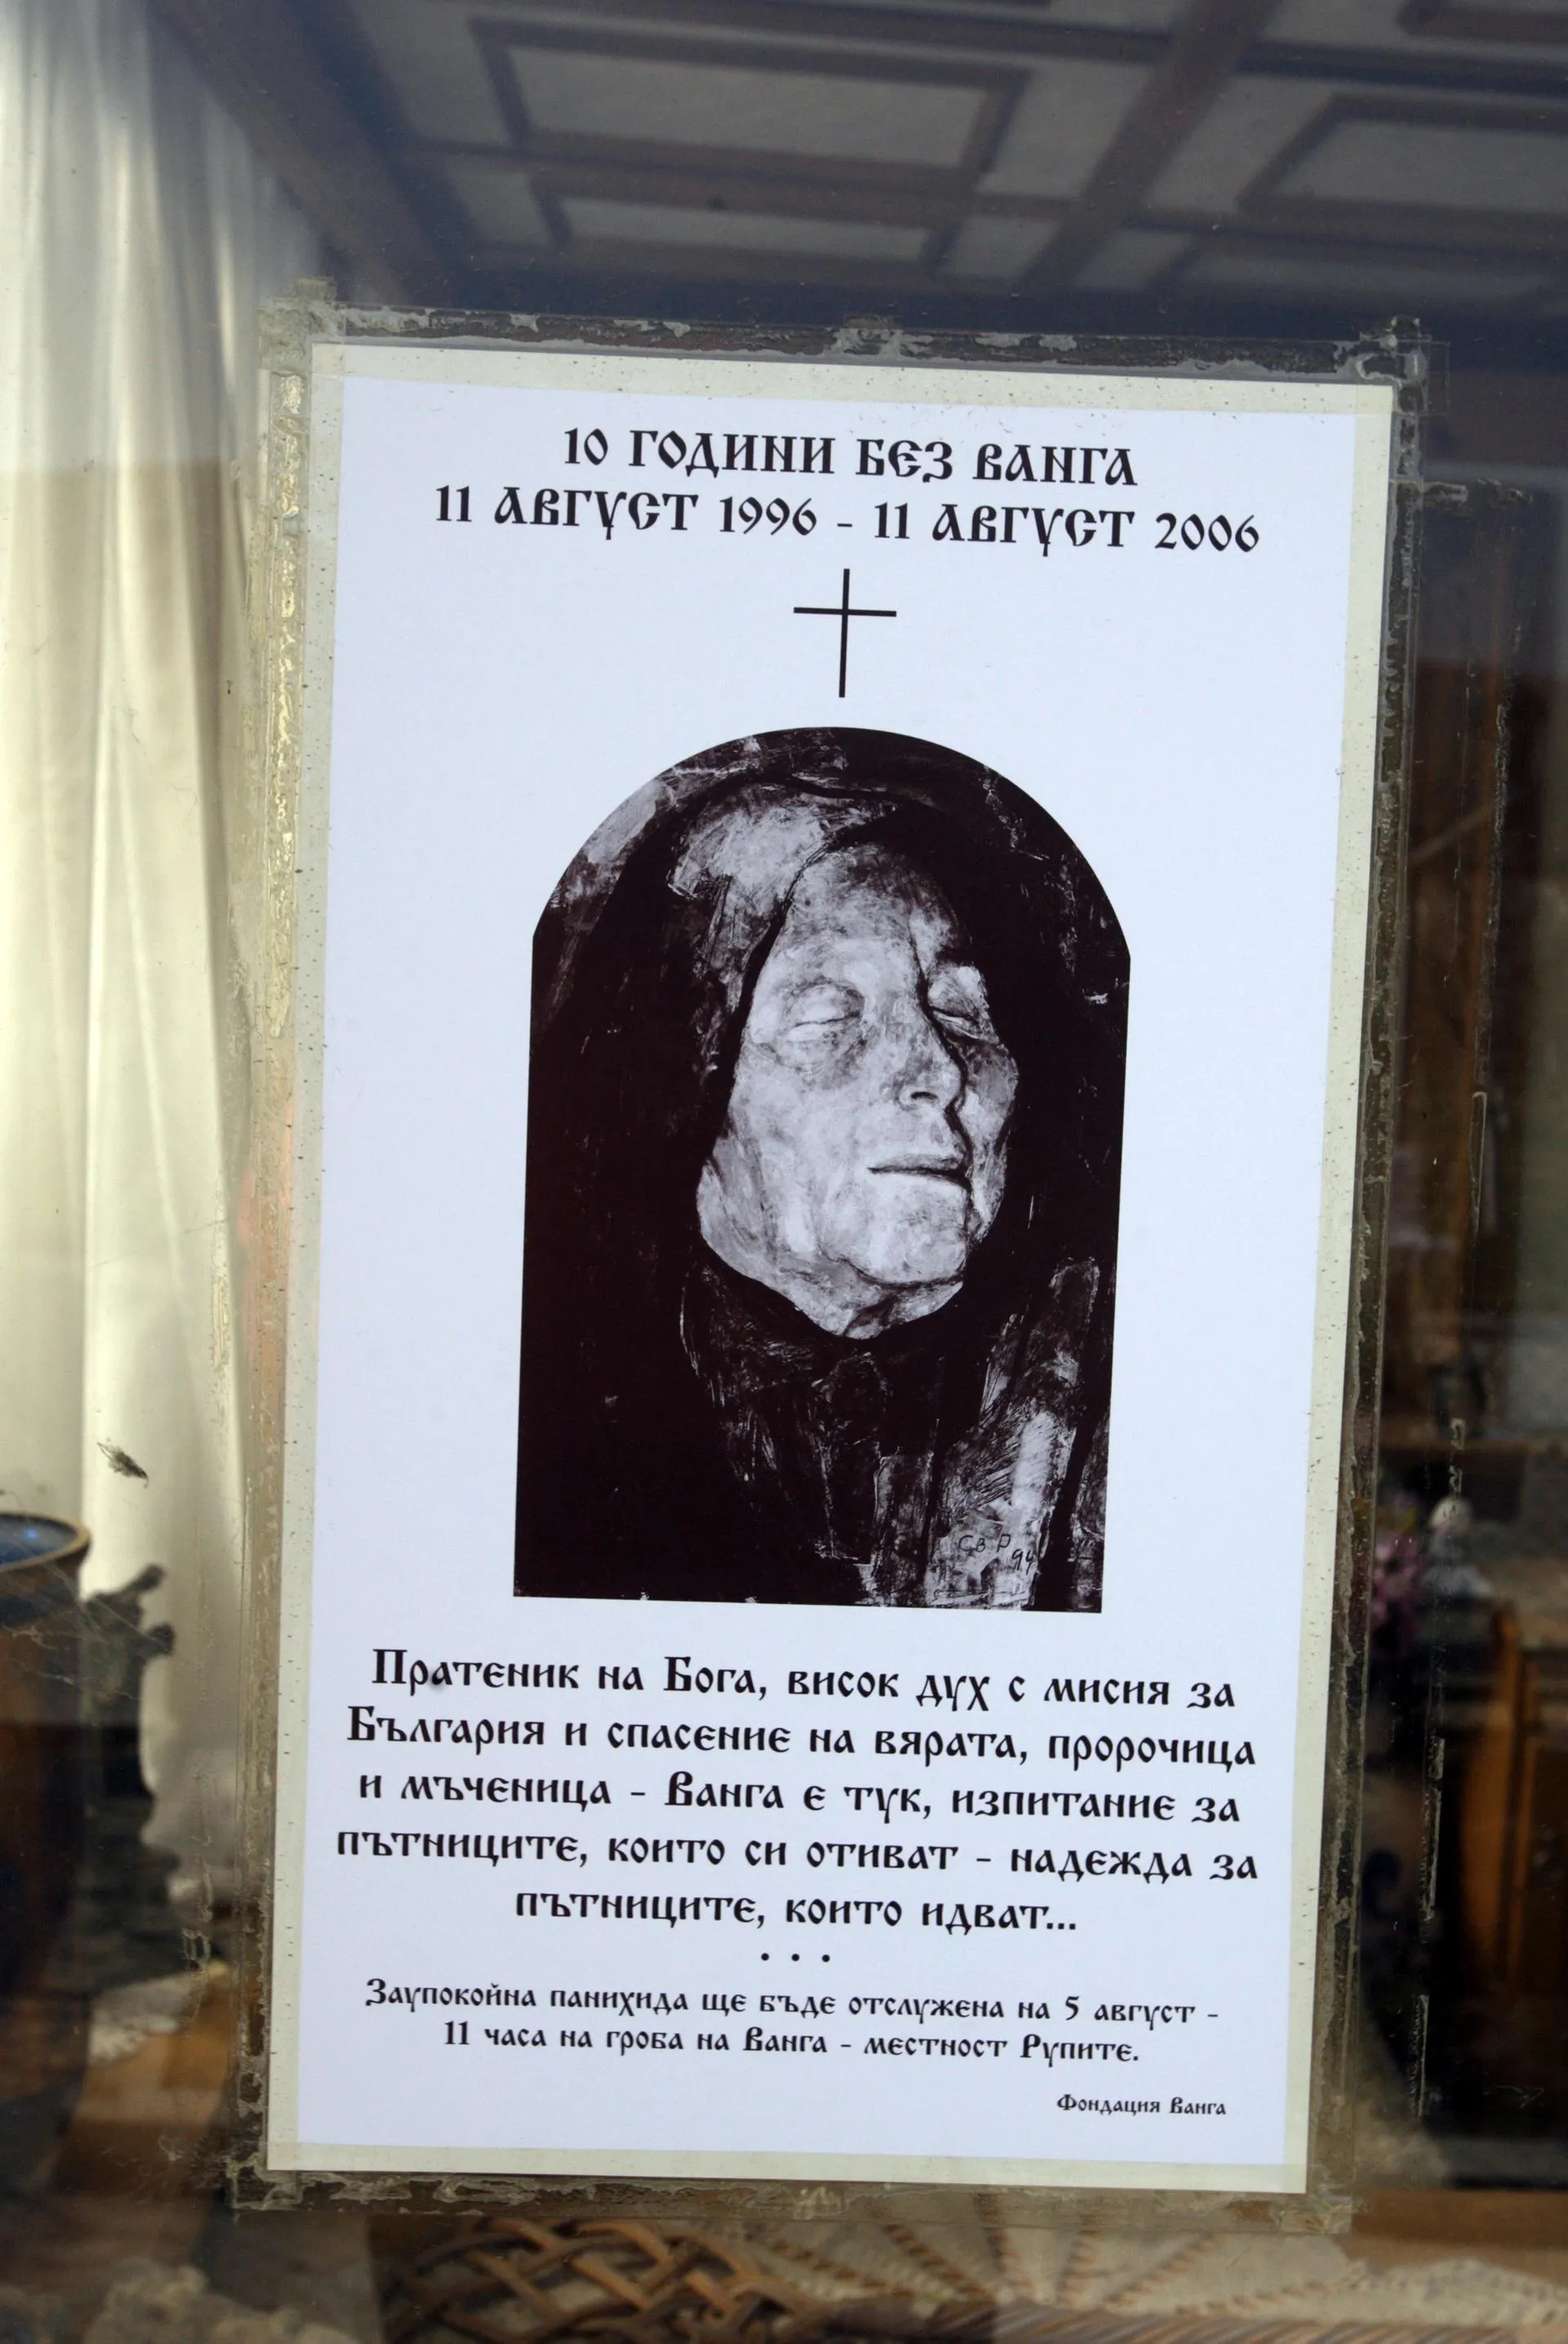 10 ГОДИНИ БЕЗ ВАНГА
11 АВГУСТ 1996 - 11 АВГУСТ 2006
Св Р
94
Пратеник на Бога, висок дух с мисия за
България и спасение на вярата, пророчица
и мъченица - Ванга е тук, изпитание за
пътниците, които си отиват - надежда за
пътниците, които идват...
• • •
Заупокойна панихида ще бъде отслужена на 5 август -
11 часа на гроба на Ванга - местност Рупите.
Фондация Ванга